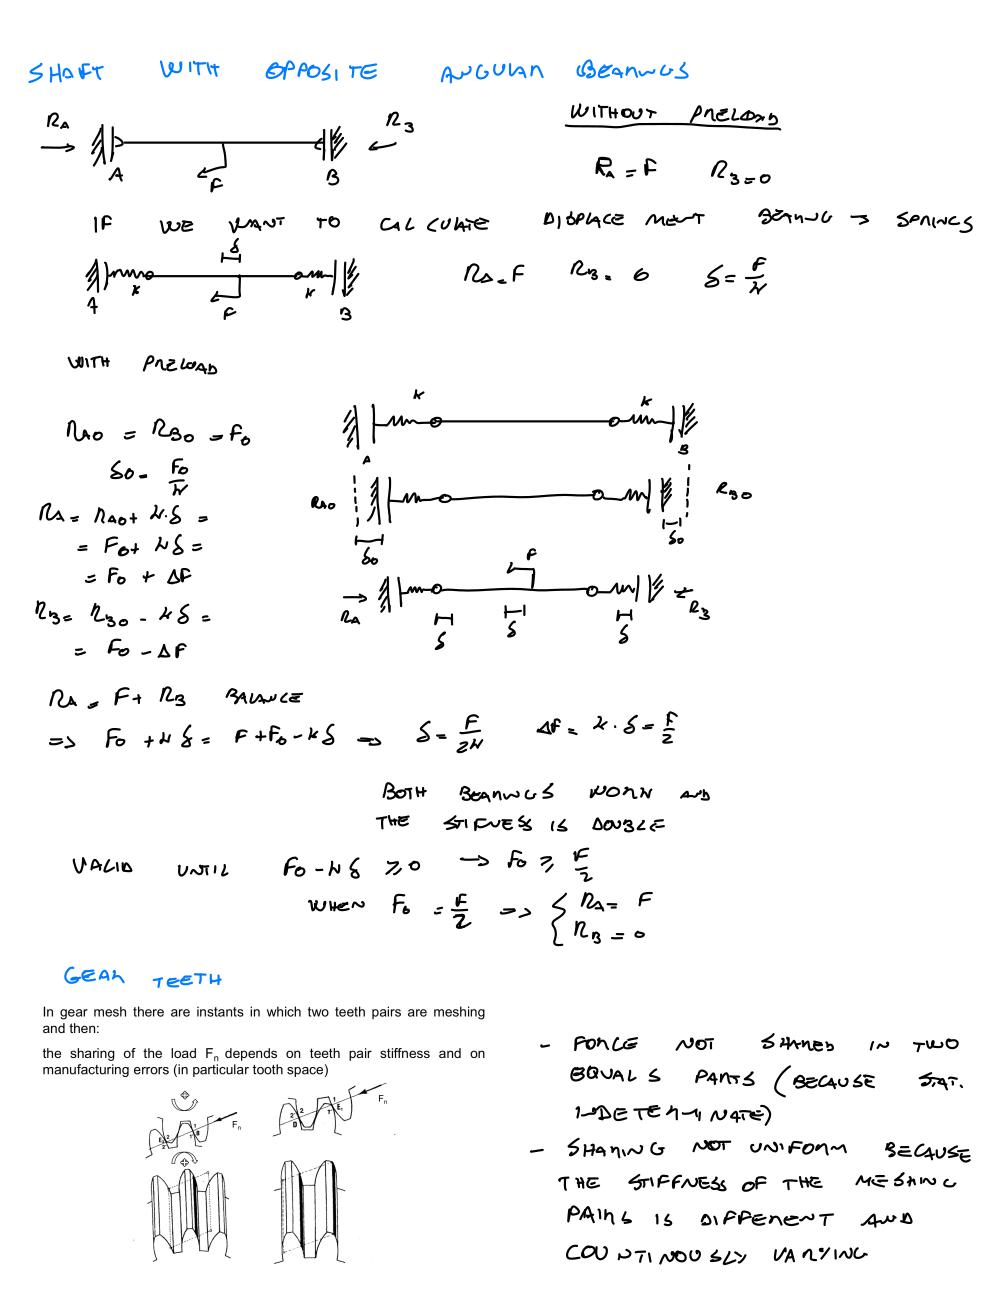 SHAFT WITH OPPOSITE ANGULAR BEARINGS
WITHOUT PRELOAD
RA R3
A F B
RA = F RB=0
IF WE WANT TO CALCULATE DISPLACEMENT BEARING → SPRINGS
δ
K K
A F B
RA=F RB=0 δ=F/K
WITH PRELOAD
K K
A B
RA0 = RB0 = F0
δ0 = F0/K
RA0 RB0
δ0 δ0
RA = RA0 + K·δ =
= F0 + Kδ =
= F0 + ΔF
F
RA RB
δ δ δ
RB = RB0 - Kδ =
= F0 - ΔF
RA = F + RB BALANCE
=> F0 + Kδ = F + F0 - Kδ => δ = F/2K ΔF = K·δ = F/2
BOTH BEARINGS WORK AND
THE STIFNESS IS DOUBLE
VALID UNTIL F0 - Kδ ≥ 0 → F0 ≥ F/2
WHEN F0 = F/2 => { RA = F
RB = 0
GEAR TEETH
In gear mesh there are instants in which two teeth pairs are meshing
and then:
the sharing of the load Fn depends on teeth pair stiffness and on
manufacturing errors (in particular tooth space)
Fn Fn
- FORCE NOT SHARED IN TWO
EQUALS PARTS (BECAUSE STAT.
INDETERMINATE)
- SHARING NOT UNIFORM BECAUSE
THE STIFFNESS OF THE MESHING
PAIRS IS DIFFERENT AND
COUNTINOUSLY VARYING